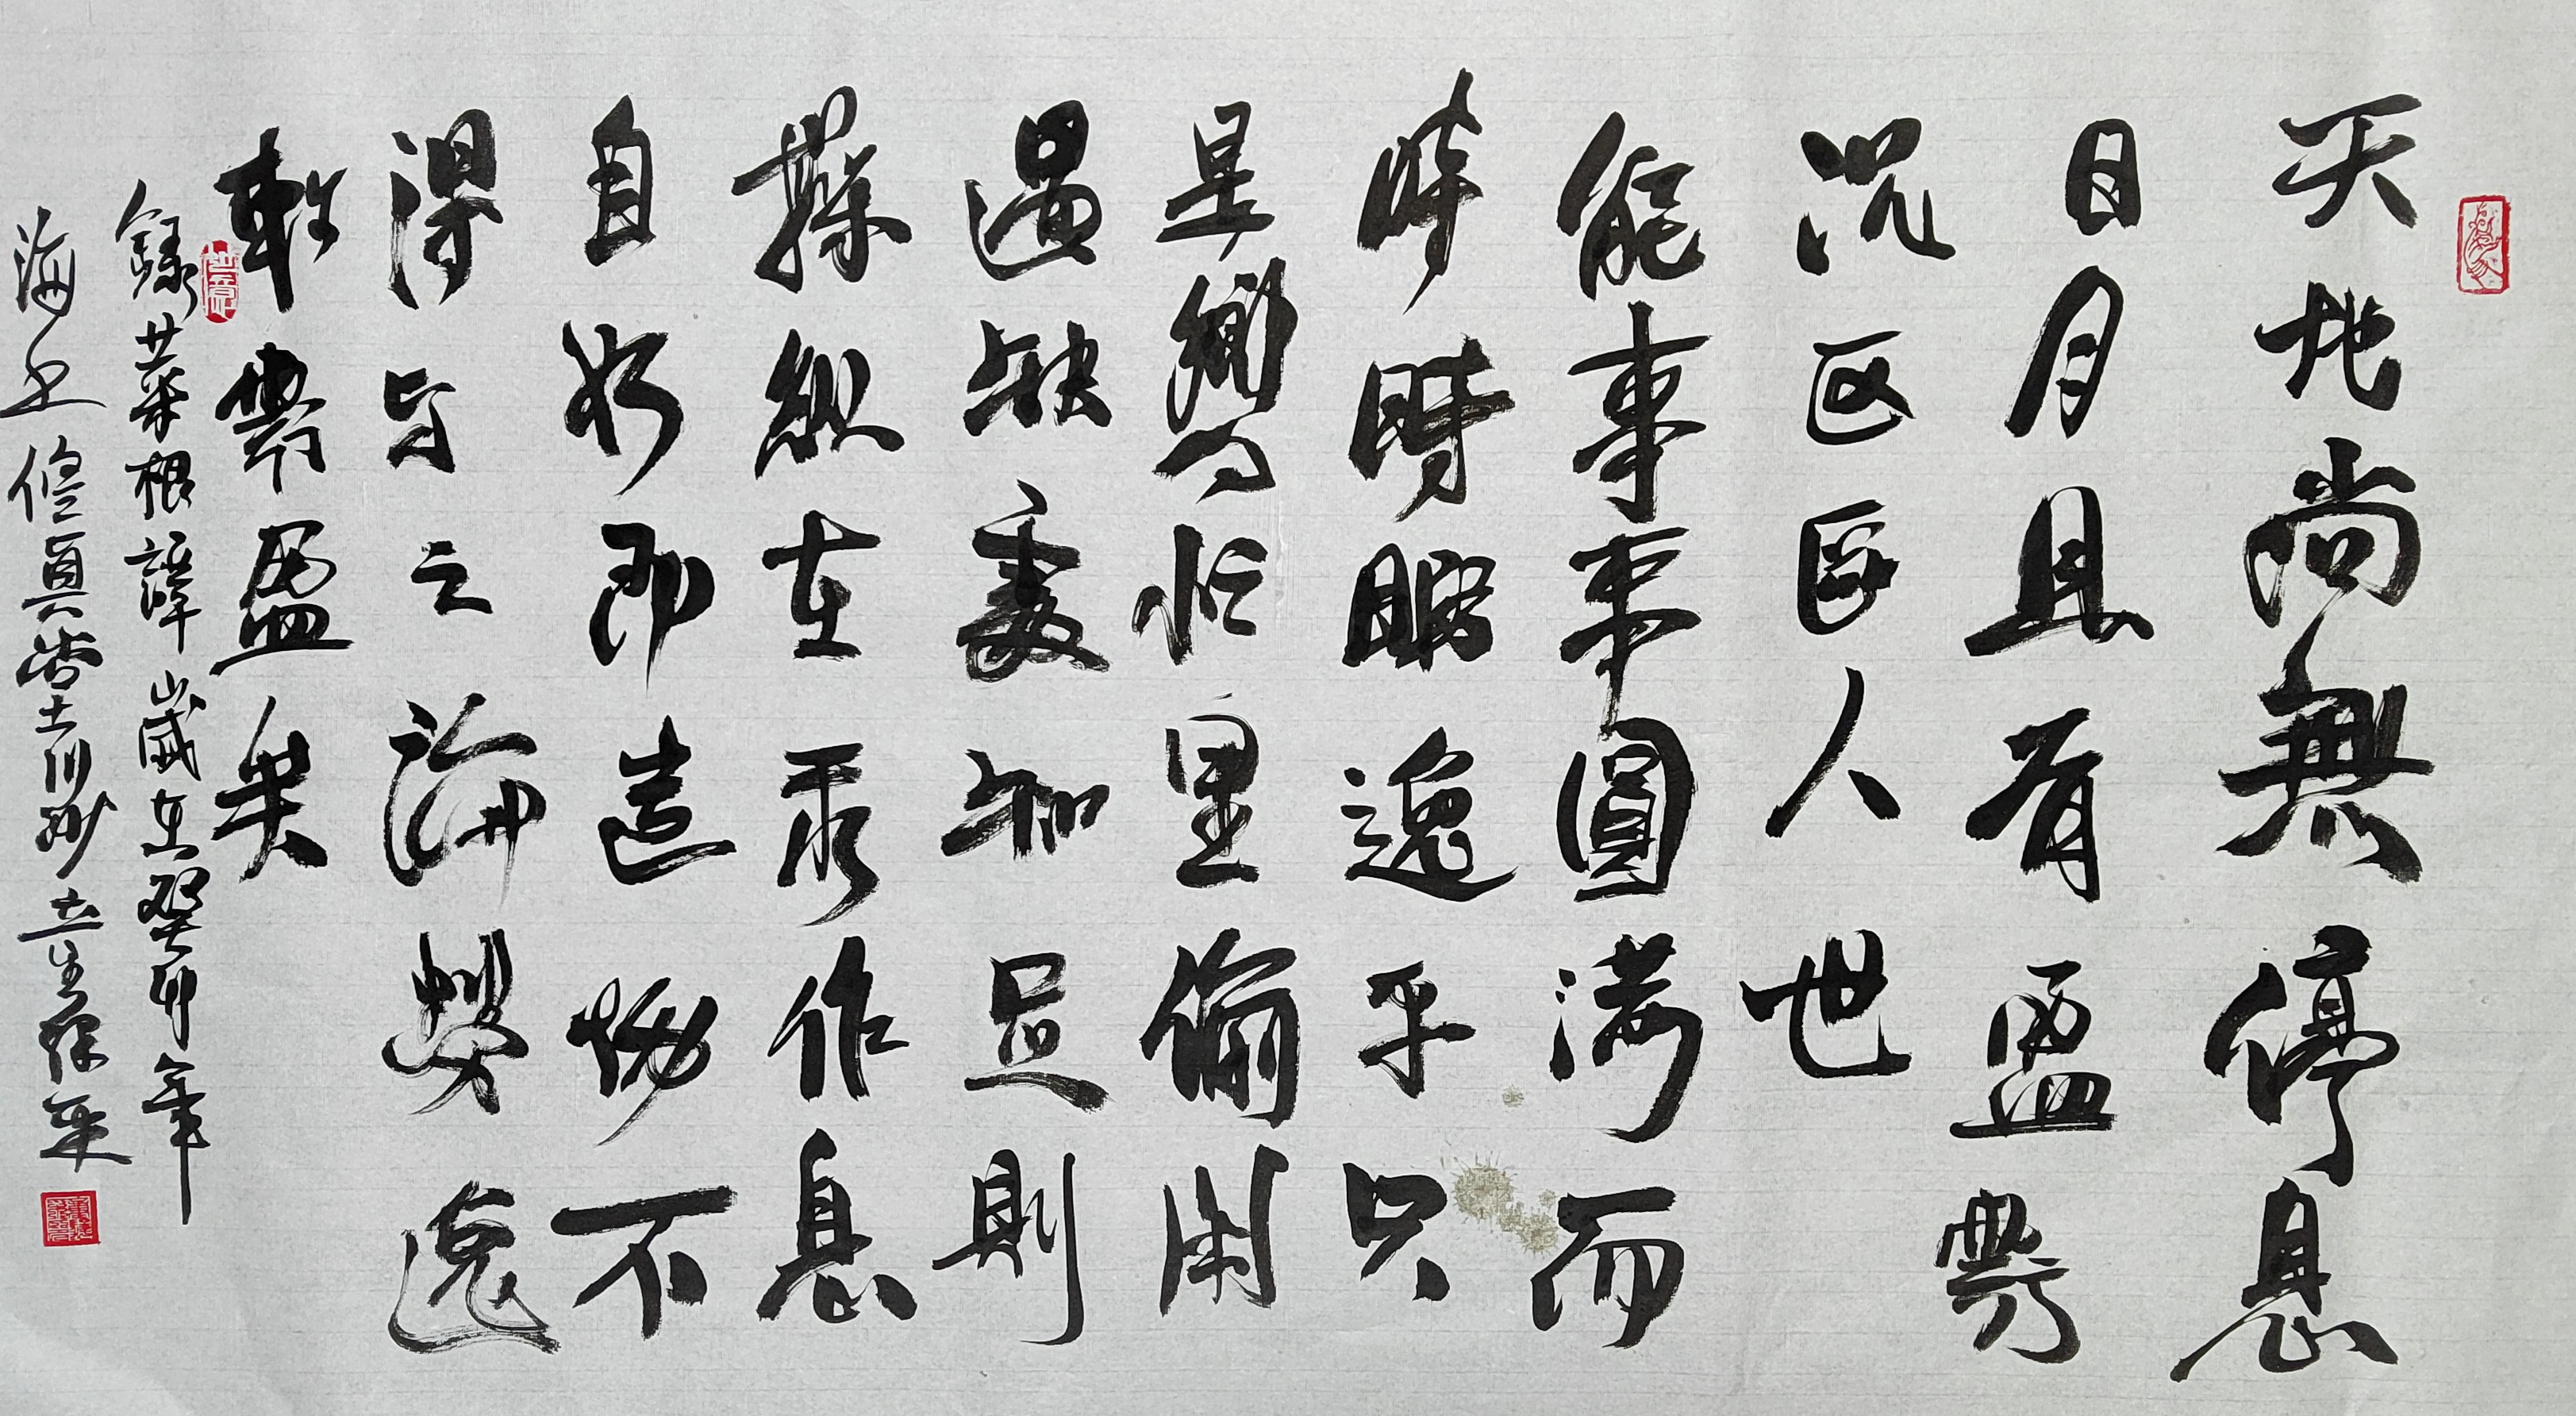 天地尚無停息
日月且有盈虧
况区区人世
能事事圓满而
時時暇逸乎只
是向忙里偷闲
遇缺處知足則
操縱在我作息
自如即造物不
得与之論勞逸
較虧盈矣
錄菜根譚歲在癸卯年
海上